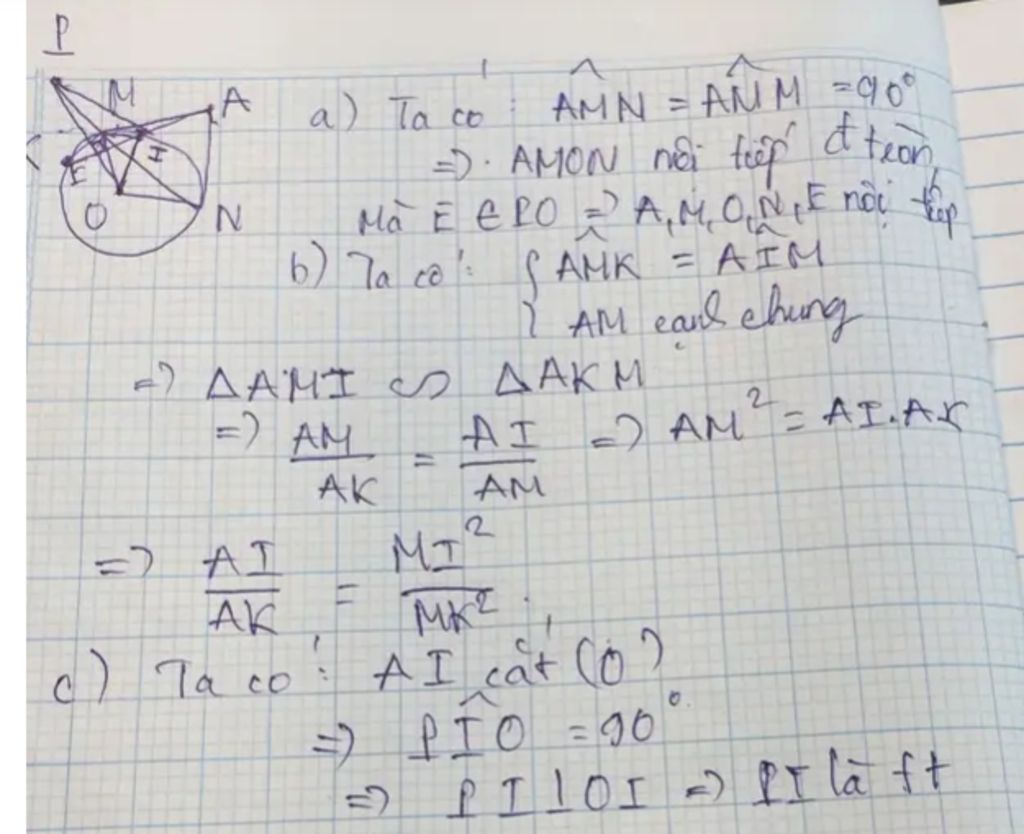 P
M
A
E
I
O
N
a) Ta có: AM̂N = AN̂M = 90°
=> AMON nội tiếp đ tròn
Mà E ∈ PO => A, M, O, N, E nội tiếp
b) Ta có: { AM̂K = AÎM
{ AM cạnh chung
=> ΔAMI ∽ ΔAKM
=> AM/AK = AI/AM => AM² = AI.AK
=> AI/AK = MI²/MK².
c) Ta có: AI cắt (O)
=> PÎO = 90°
=> PI ⊥ OI => PI là tt